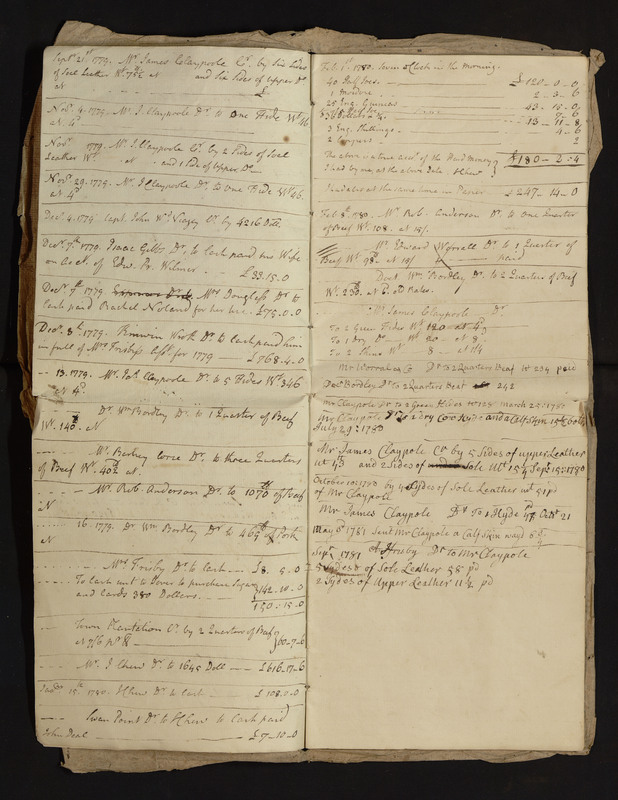 Sept. 21st 1779. Mr. James Claypoole Cr. by Six Sides
of Soal Leather Wt. 78 lb at and Six Sides of Upper Do
at £
Nov. 4. 1779. Mr. J. Claypoole Dr. to One Hide Wt. 46
at 4d
Novr. 1779. Mr. J. Claypoole Cr. by 2 Sides of Soal
Leather Wt. at and 1 Side of Upper Do
Novr. 29. 1779. Mr. J Claypoole Dr. to One Hide Wt. 46.
at 4d
Decr. 4. 1779. Capt. John Cr. by 4216 Doll.
Decr. 7th. 1779. Isaac Gibbs Dr. to Cash paid his Wife
on Acct. of Edw. Pr. Wilmer - £33.15.0
Decr. 7th 1779 Mrs. Douglass Dr. to
Cash paid Rachel Noland for her use. £75.0.0
Decr. 8th. 1779. Dr. to Cash paid him
in full of Mrs Frisby's for 1779 - £768.4.0
13. 1779. Mr. Jas. Claypoole Dr. to 5 Hides Wt. 346
at 4d
Dr. Wm. Bordley Dr. to 1 Quarter of Beef
Wt. 140 lb. at
Mr. Dr. to three Quarters
of Beef Wt. 402 at
Mr. Rob. Anderson Dr. to 107 lb of Beef
at
16. 1779. Dr Wm Bordley Dr. to 469 lb of Pork
at
Mrs. Frisby Dr. to Cash - £8. 5.0
To Cash sent to Dover to purchase Sugar
and Cards 380 Dollars } 142.10.0
£150.15.0
Town Plantation Cr. by 2 Quarters of Beef
at 9/6 } 60-7-6
Mr. J. Chew Dr. to 1645 Doll - £616.17.6
15th. 1780. J Chew Dr. to Cash - £108.0.0
Swan Point Dr. to J Chew to Cash paid
John Deal - £7-10-0
Feb. 1st. 1780. Seven oClock in the Morning.
40 £120-0-0
1 moidore - 2-3-6
25 Eng. Guineas 43.15.0
7-6
36 Dollars 13-11-8
3 Eng. Shillings - 4-6
2 2
The above is a true acct. of the Hard Money
} £180-2-4
I had by me, at the above Date.
I had also at the same time in Paper £247-14-0
Feb. 8th. 1780. Mr. Rob. Anderson Dr. to One Quarter
of Beef Wt. 108. at 14/.
Mr. Edward Worrell Dr. to 1 Quarter of
Beef Wt. 98 lb. at 14/ paid
Doct. Wm. Bordley Dr. to 2 Quarters of Beef
Wt. 230. at
Mr. James Claypoole Dr.
To 2 Green Hides Wt 120 at 4d
To 1 Dry Do. Wt 20 at 8
To 2 Skins Wt. 8 at 1/4
Mr Worral Dr to 2 Quarters Beaf Wt 234 paid
Doct Bordley Dr to 2 Quarters Beaf 242
Mr Claypole Dr to 2 Green Hides Wt 124 march 24: 1780
Mr Claypole Dr to 2 dry Cow Hides and a Calf Skin
July 29: 1780
Mr James Claypole Cr by 5 Sides of upper Leather
wt 13 and 2 Sides of Sole Wt 15 Sept 15: 1780
October 10 1780 by 4 Sydes of Sole Leather wt 51 pd
of Mr Claypole
Mr James Claypole Dr To 1 Hyde Octr 21
May 5th 1781 Sent Mr Claypole a Calf Skin wayd
Sept 1781 A Frisby Dr to Mr Claypole
Sydes of Sole Leather 58 pd
2 Sydes of Upper Leather 11 pd